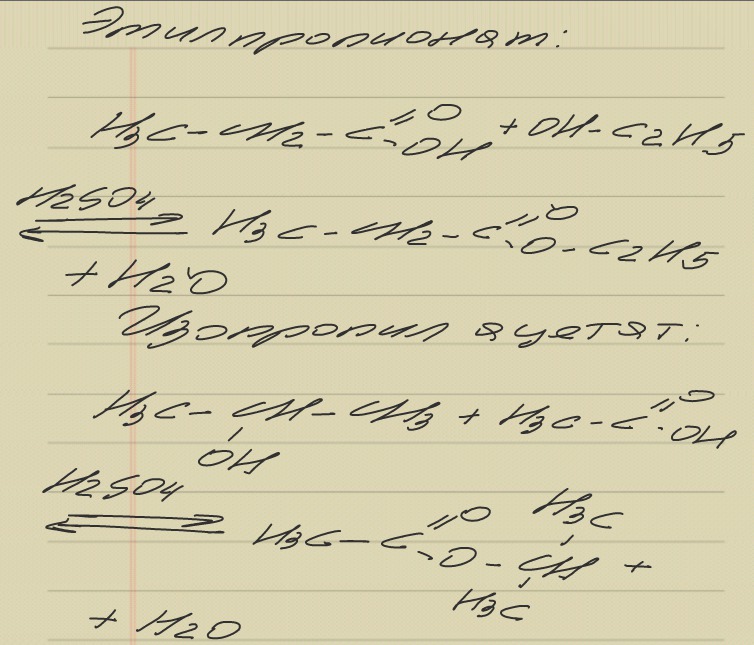 Этилпропионят:
H3C - CH2 - C =O OH + OH - C2H5
H2SO4 ⇌ H3C - CH2 - C =O O - C2H5
+ H2O
Изопропил яцетят:
H3C - CH - CH3 + H3C - C =O OH
OH
H2SO4 ⇌ H3C - C =O O - CH H3C H3C +
+ H2O